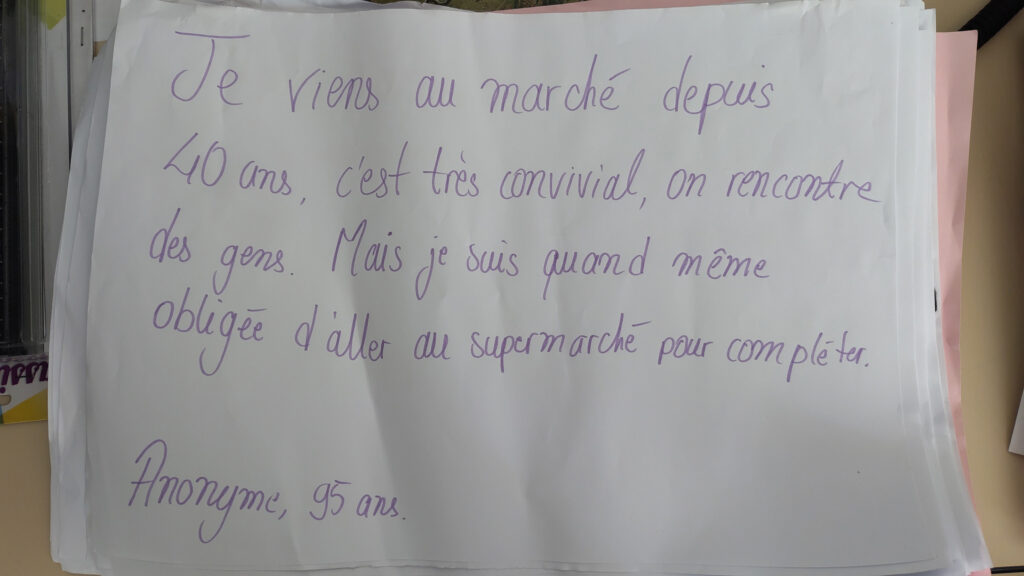 Je viens au marché depuis
40 ans, c'est très convivial, on rencontre
des gens. Mais je suis quand même
obligée d'aller au supermarché pour compléter.
Anonyme, 95 ans.